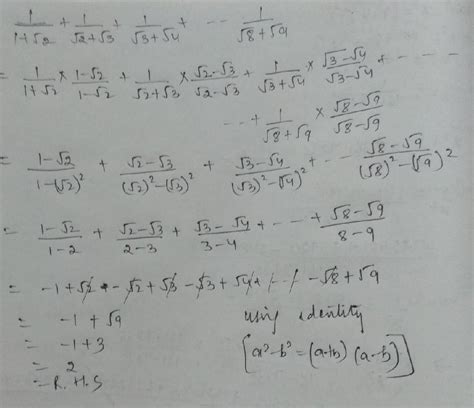 1/(1+√2) + 1/(√2+√3) + 1/(√3+√4) + - - 1/(√8+√9)
= 1/(1+√2) × (1-√2)/(1-√2) + 1/(√2+√3) × (√2-√3)/(√2-√3) + 1/(√3+√4) × (√3-√4)/(√3-√4) + - - - -
- - + 1/(√8+√9) × (√8-√9)/(√8-√9)
= (1-√2)/(1-(√2)²) + (√2-√3)/((√2)²-(√3)²) + (√3-√4)/((√3)²-(√4)²) + - - (√8-√9)/((√8)²-(√9)²)
= (1-√2)/(1-2) + (√2-√3)/(2-3) + (√3-√4)/(3-4) + - - + (√8-√9)/(8-9)
= -1+√2 - √2+√3 - √3+√4 + - - - √8+√9
= -1+√9
using identity
= -1+3
[a²-b² = (a+b) (a-b)]
= 2
= R.H.S